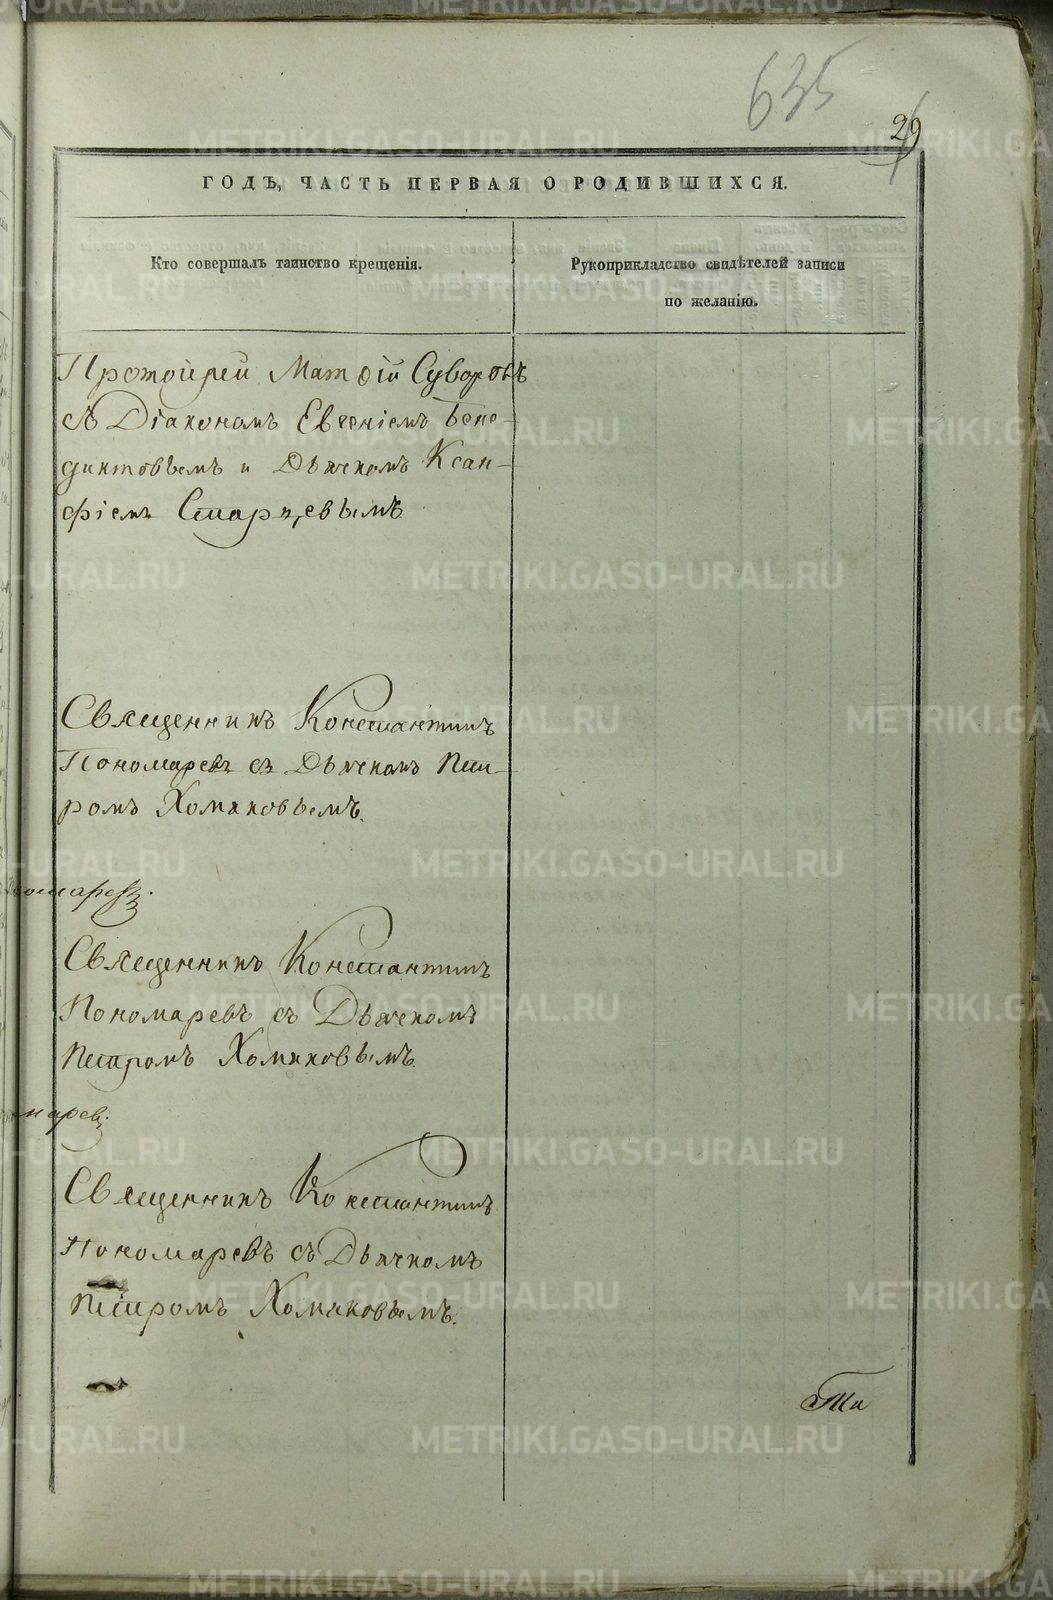 635
29
ГОДЪ, ЧАСТЬ ПЕРВАЯ О РОДИВШИХСЯ.
Кто совершалъ таинство крещенія.
Рукоприкладство свидѣтелей записи
по желанію.
Протоіерей Матѳій Суворовъ
съ Діакономъ Евгеніемъ Бене-
диктовымъ и Дьячкомъ Ксан-
фіемъ Старцевымъ
Священникъ Константинъ
Пономаревъ съ Дьячкомъ Пет-
ромъ Хомяковымъ.
омаревъ.
Священникъ Константинъ
Пономаревъ съ Дьячкомъ
Петромъ Хомяковымъ.
маревъ.
Священникъ Константинъ
Пономаревъ съ Дьячкомъ
Петромъ Хомяковымъ.
METRIKI.GASO-URAL.RU